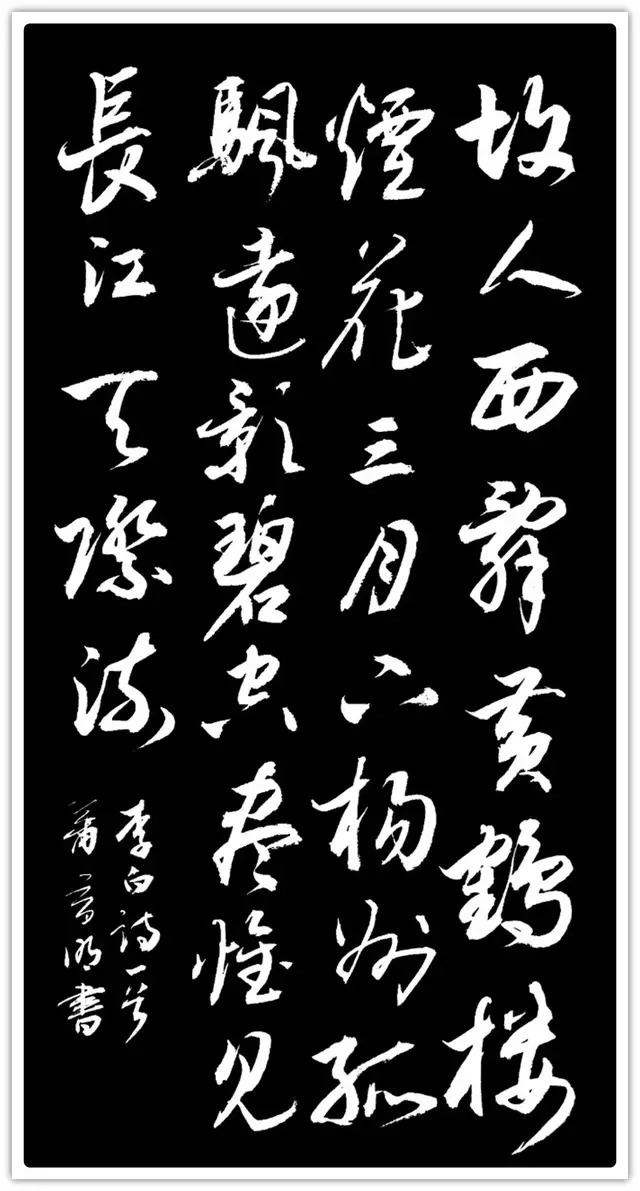 故人西辭黄鶴楼
煙花三月下楊州孤
颿遠影碧空盡惟見
長江天際流
李白詩一首
明書